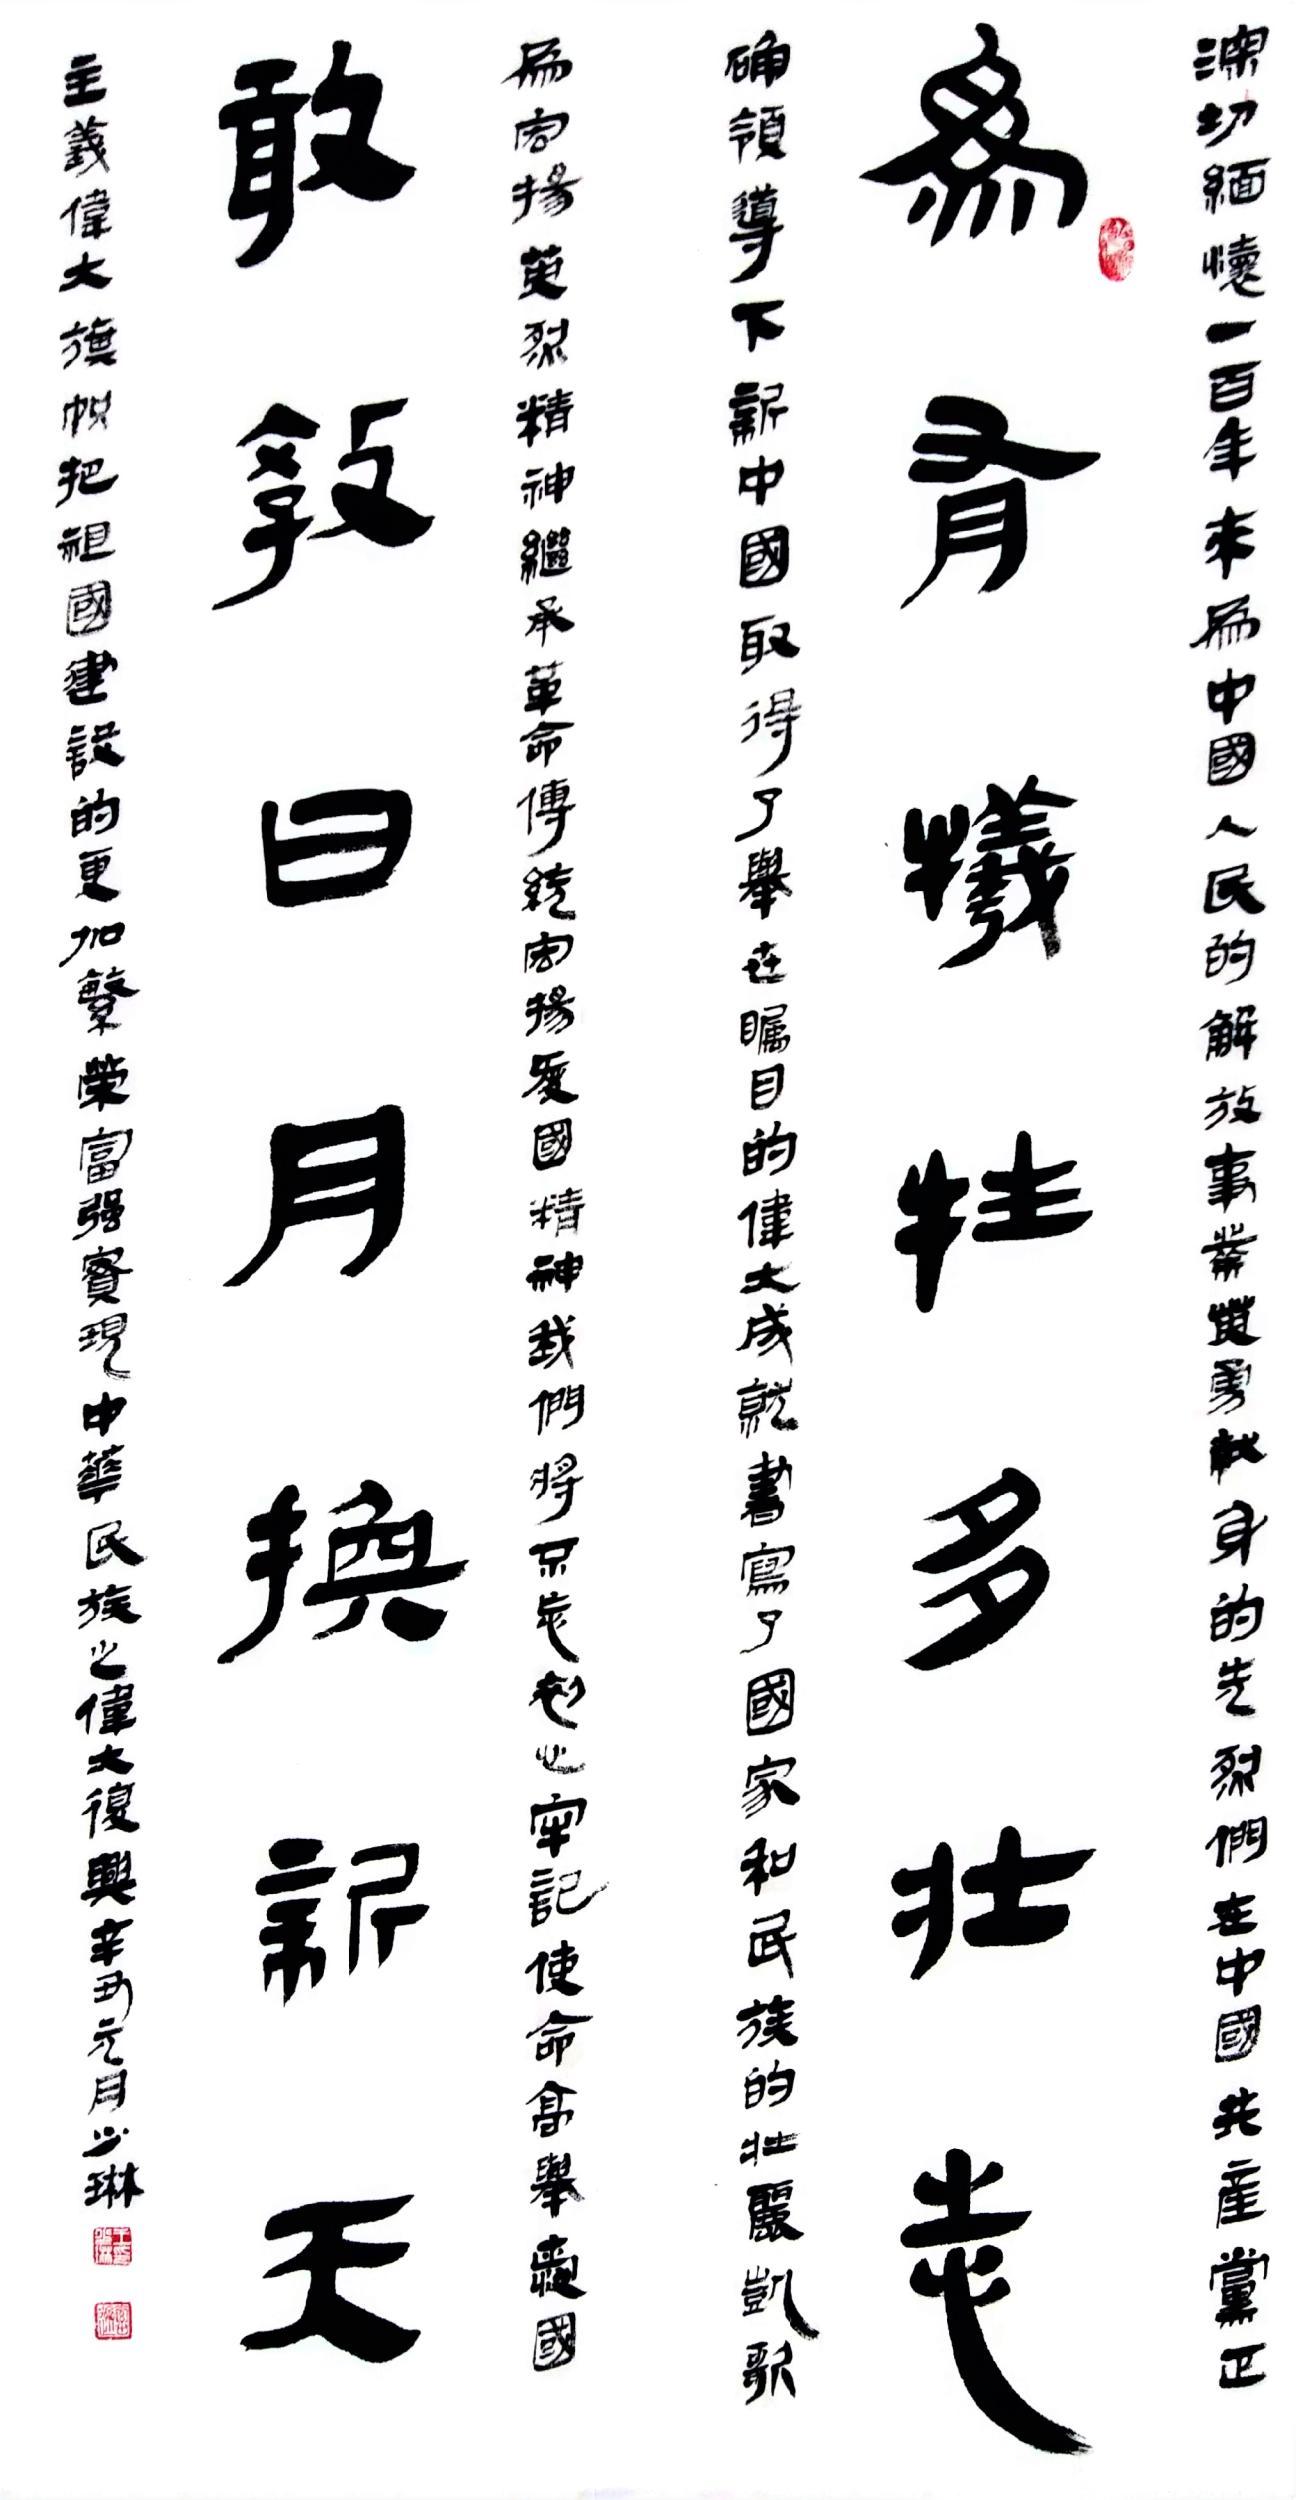 深切緬懷一百年來為中國人民的解放事業英勇献身的先烈們在中國共産黨正
為有犧牲多壮志
确領導下新中國取得了舉世瞩目的偉大成就書寫了國家和民族的壮麗凱歌
為宏揚英烈精神繼承革命傳統宏揚愛國精神我們將不忘初心牢記使命高舉愛國
敢教日月換新天
主義偉大旗帜把祖國建設的更加繁榮富强實現中華民族之偉大復興辛丑元月少琳